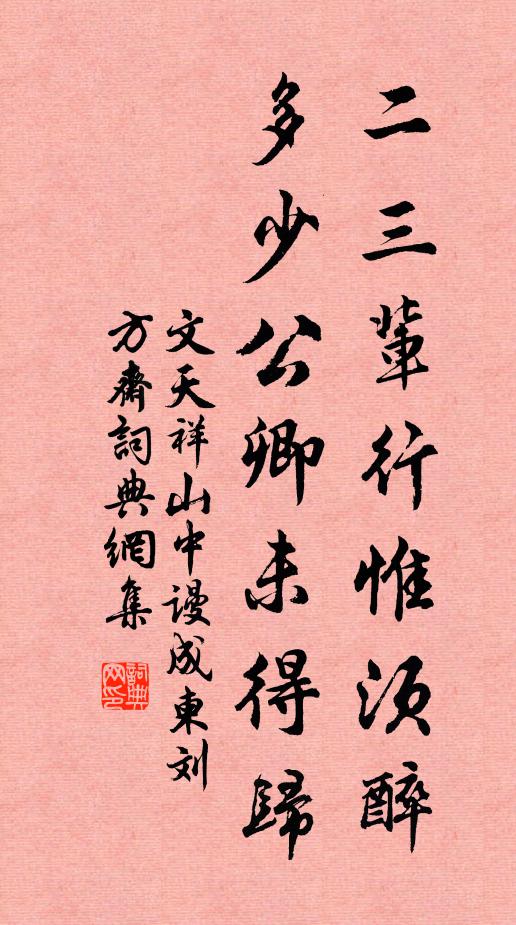 二三輩行惟須醉
多少公卿未得歸
文天祥山中谩成東刘
方齋詞典網集
詞典网印